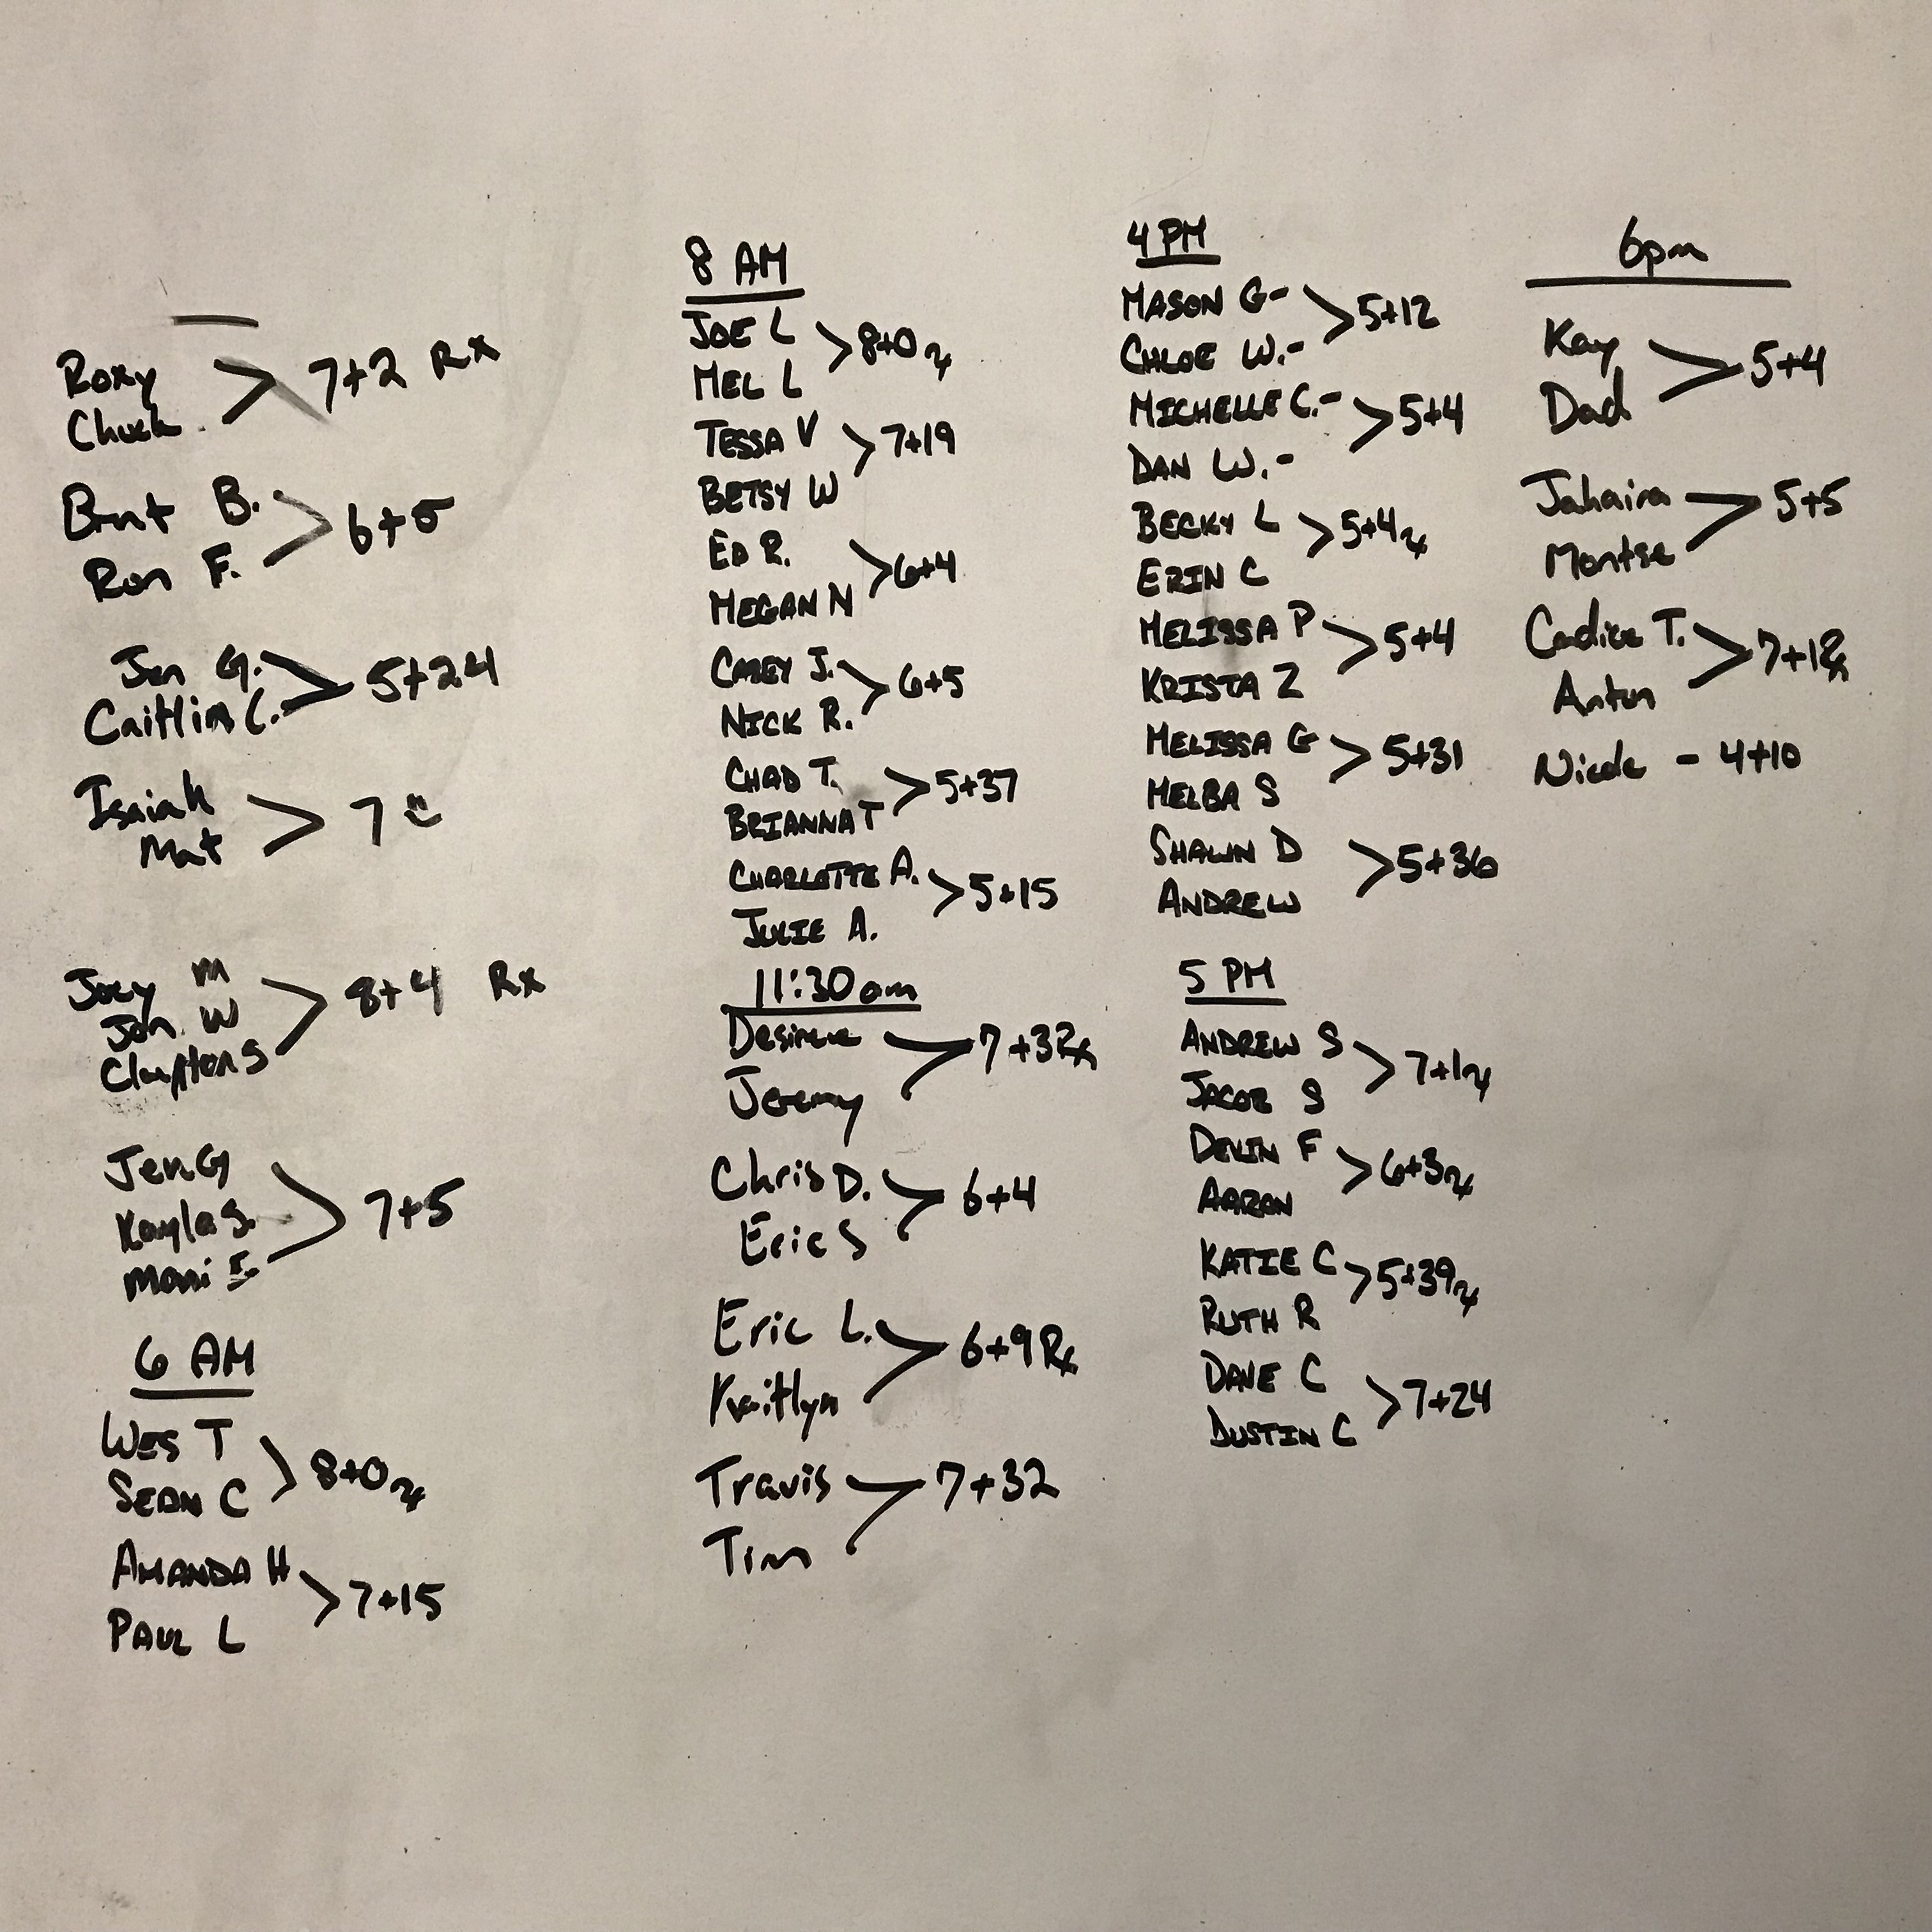 Roxy
Chuck
7+2 Rx
Brnt B.
Ron F.
6+5
Jen G.
Caitlin C.
5+24
Isaiah
Mat
7
Joey M
Jon W
Clayton S
8+4 Rx
Jen G
Kayla S.
Moni I.
7+5
6 AM
WES T
SEAN C
8+0 Rx
AMANDA H
PAUL L
7+15
8 AM
JOE L
MEL L
8+0 Rx
TESSA V
BETSY W
7+19
ED R.
MEGAN N
6+4
CASEY J.
NICK R.
6+5
CHAD T.
BRIANNA T
5+37
CHARLOTTE A.
JULIE A.
5+15
11:30am
Desiree
Jeremy
7+3 Rx
Chris D.
Eric S
6+4
Eric L.
Kaitlyn
6+9 Rx
Travis
Tim
7+32
4 PM
MASON G-
CHLOE W.-
5+12
MICHELLE C.-
DAN W.-
5+4
BECKY L
ERIN C
5+4 Rx
MELISSA P
KRISTA Z
5+4
MELISSA G
MELBA S
5+31
SHAWN D
ANDREW
5+36
5 PM
ANDREW S
JACOB S
7+1 Rx
DEVIN F
AARON
6+3 Rx
KATIE C
RUTH R
5+39 Rx
DAVE C
DUSTIN C
7+24
6pm
Kay
Dad
5+4
Jahaira
Montse
5+5
Candice T.
Anton
7+1 Rx
Nicole - 4+10